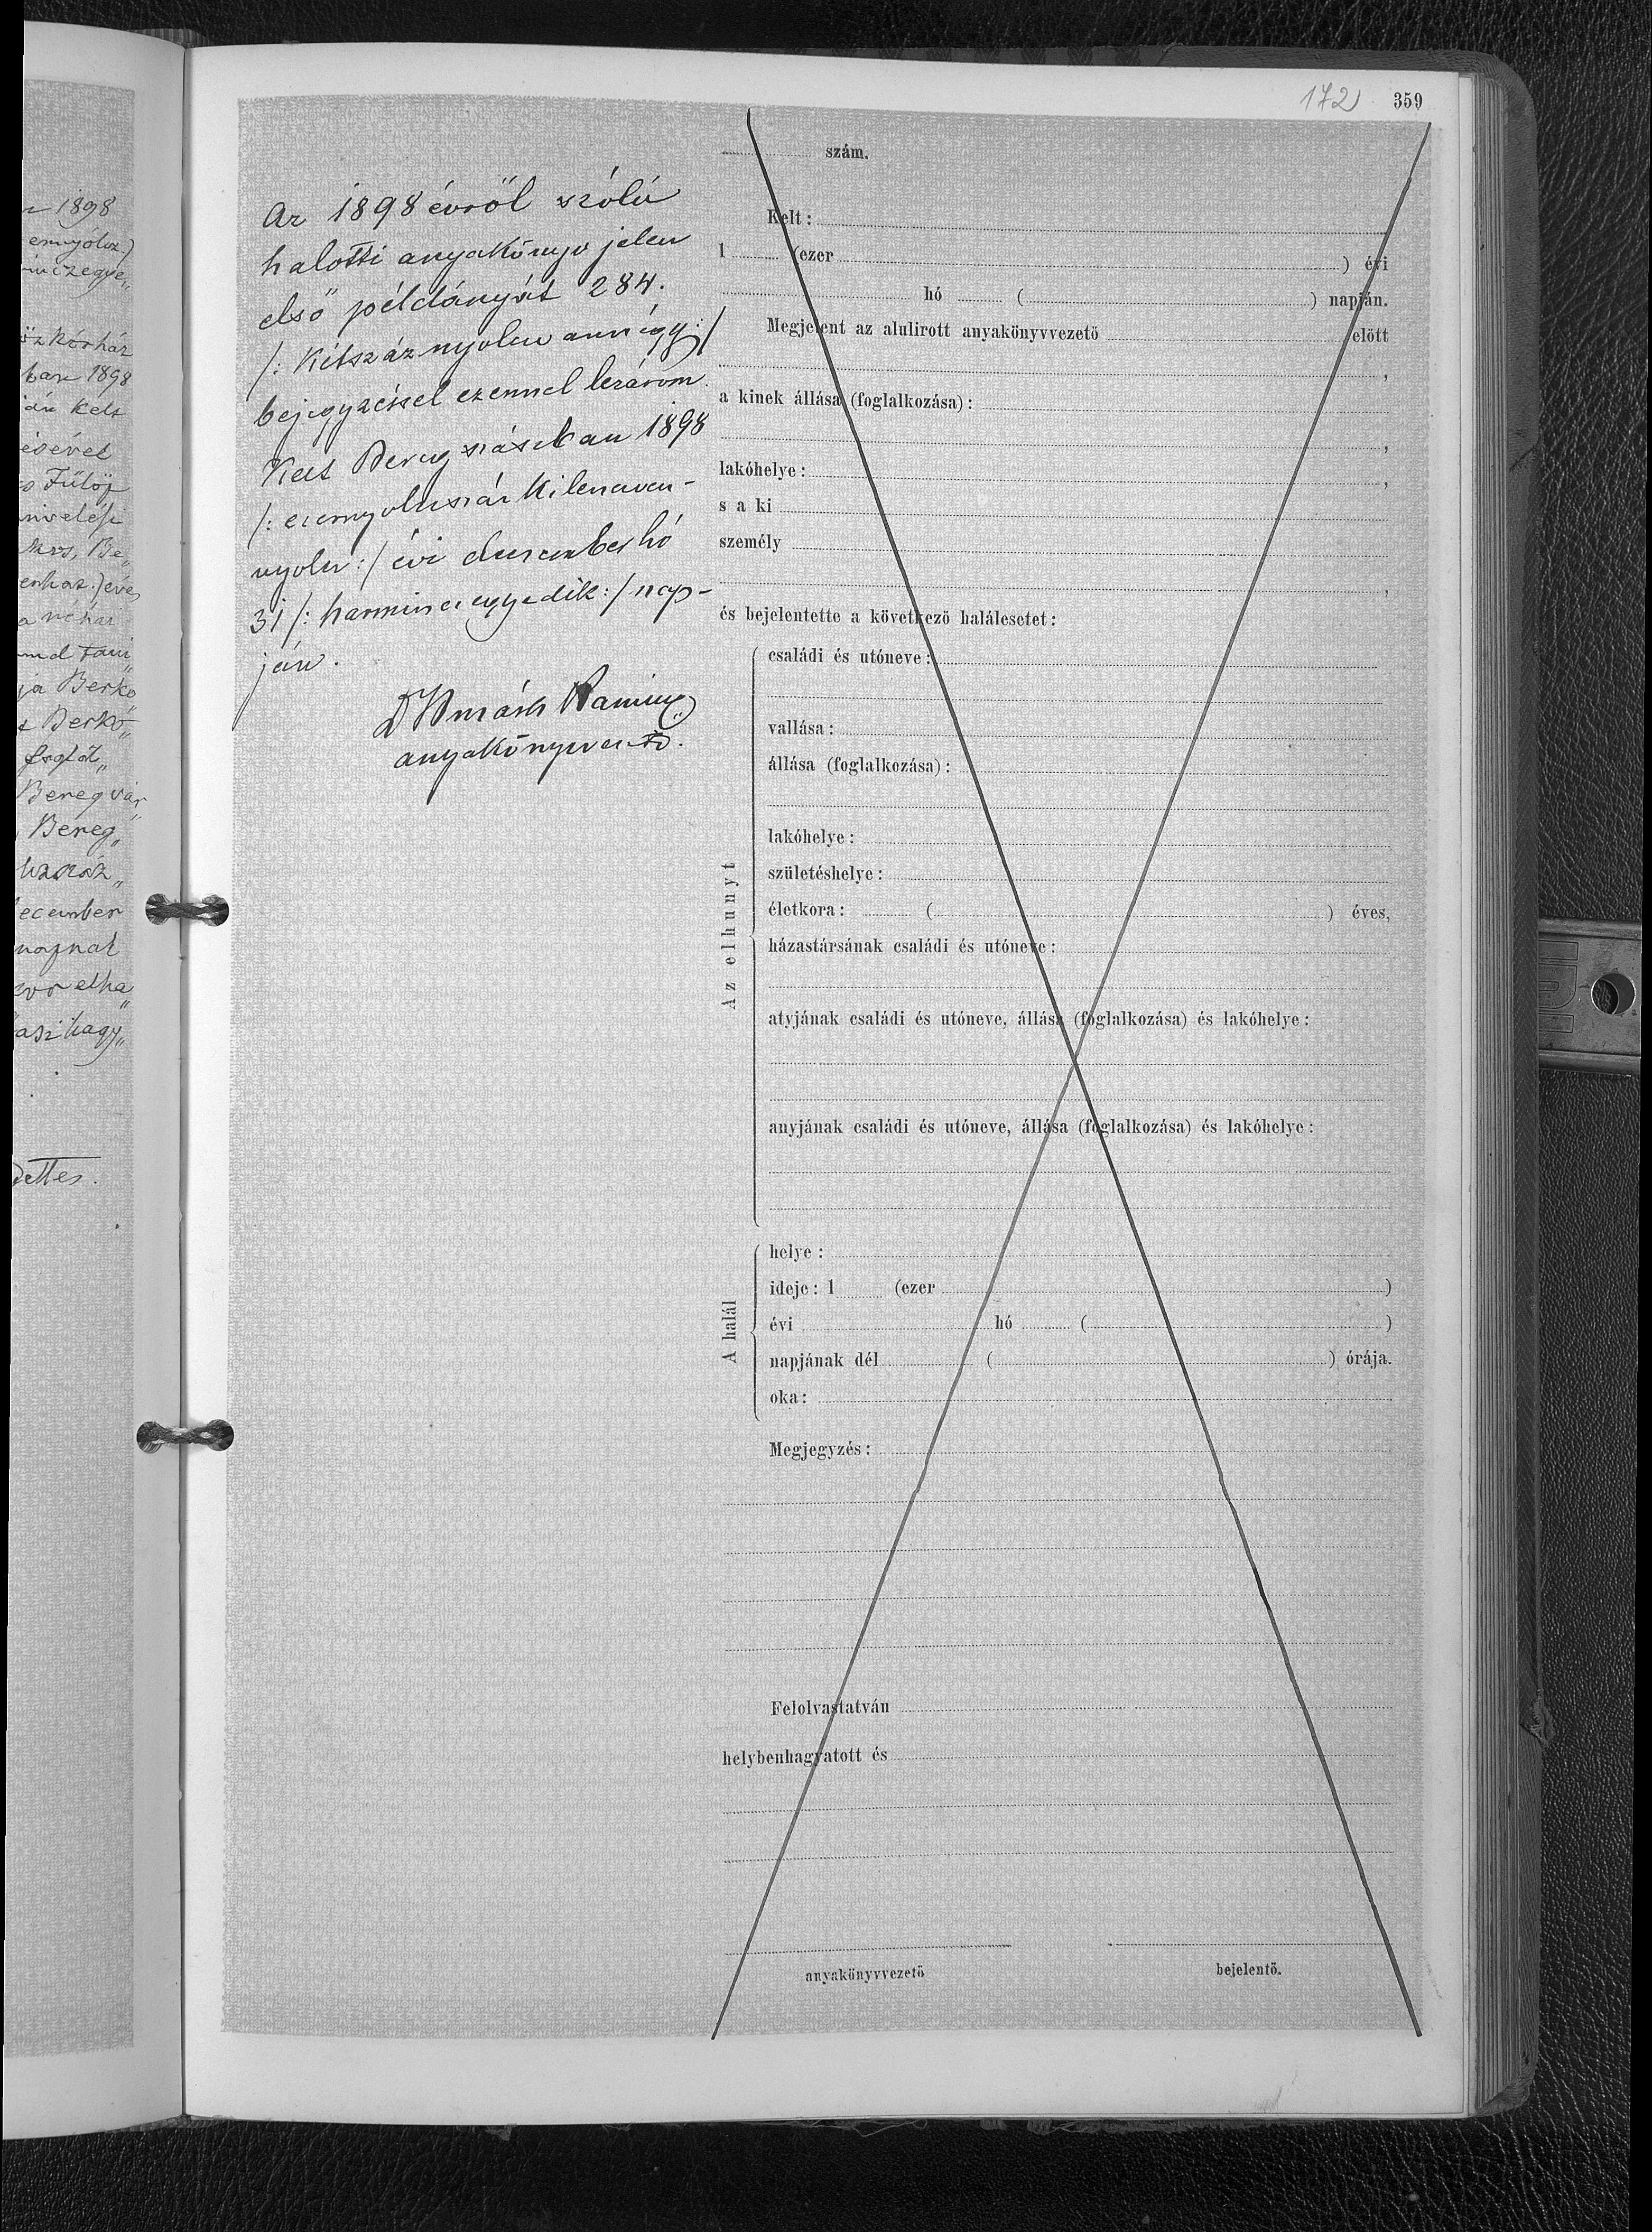 1898
ennyólcz.)
1898
Kelt
Fülöp
Berko
Bereg„
ecember
napnak
172 359
Az 1898 évről szóló
halotti anyakönyv jelen
első példányát 284.
/: Kétszáznyolcvannégy :/
bejegyzéssel ezennel lezárom.
Kelt Beregszászban 1898
/: ezernyolcszázkilencven-
nyolcz :/ évi deczember hó
31 /: harminczegyedik :/ nap-
ján.
anyakönyvvezető.
szám.
Kelt:
1 (ezer ) évi
hó ( ) napján.
Megjelent az alulirott anyakönyvvezető előtt
,
a kinek állása (foglalkozása):
,
lakóhelye: ,
s a ki
személy
,
és bejelentette a következő halálesetet:
Az elhunyt
családi és utóneve:
vallása:
állása (foglalkozása):
lakóhelye:
születéshelye:
életkora: ( ) éves,
házastársának családi és utóneve:
atyjának családi és utóneve, állása (foglalkozása) és lakóhelye:
anyjának családi és utóneve, állása (foglalkozása) és lakóhelye:
A halál
helye:
ideje: 1 (ezer )
évi hó ( )
napjának dél ( ) órája.
oka:
Megjegyzés:
Felolvastatván
helybenhagyatott és
anyakönyvvezető bejelentő.